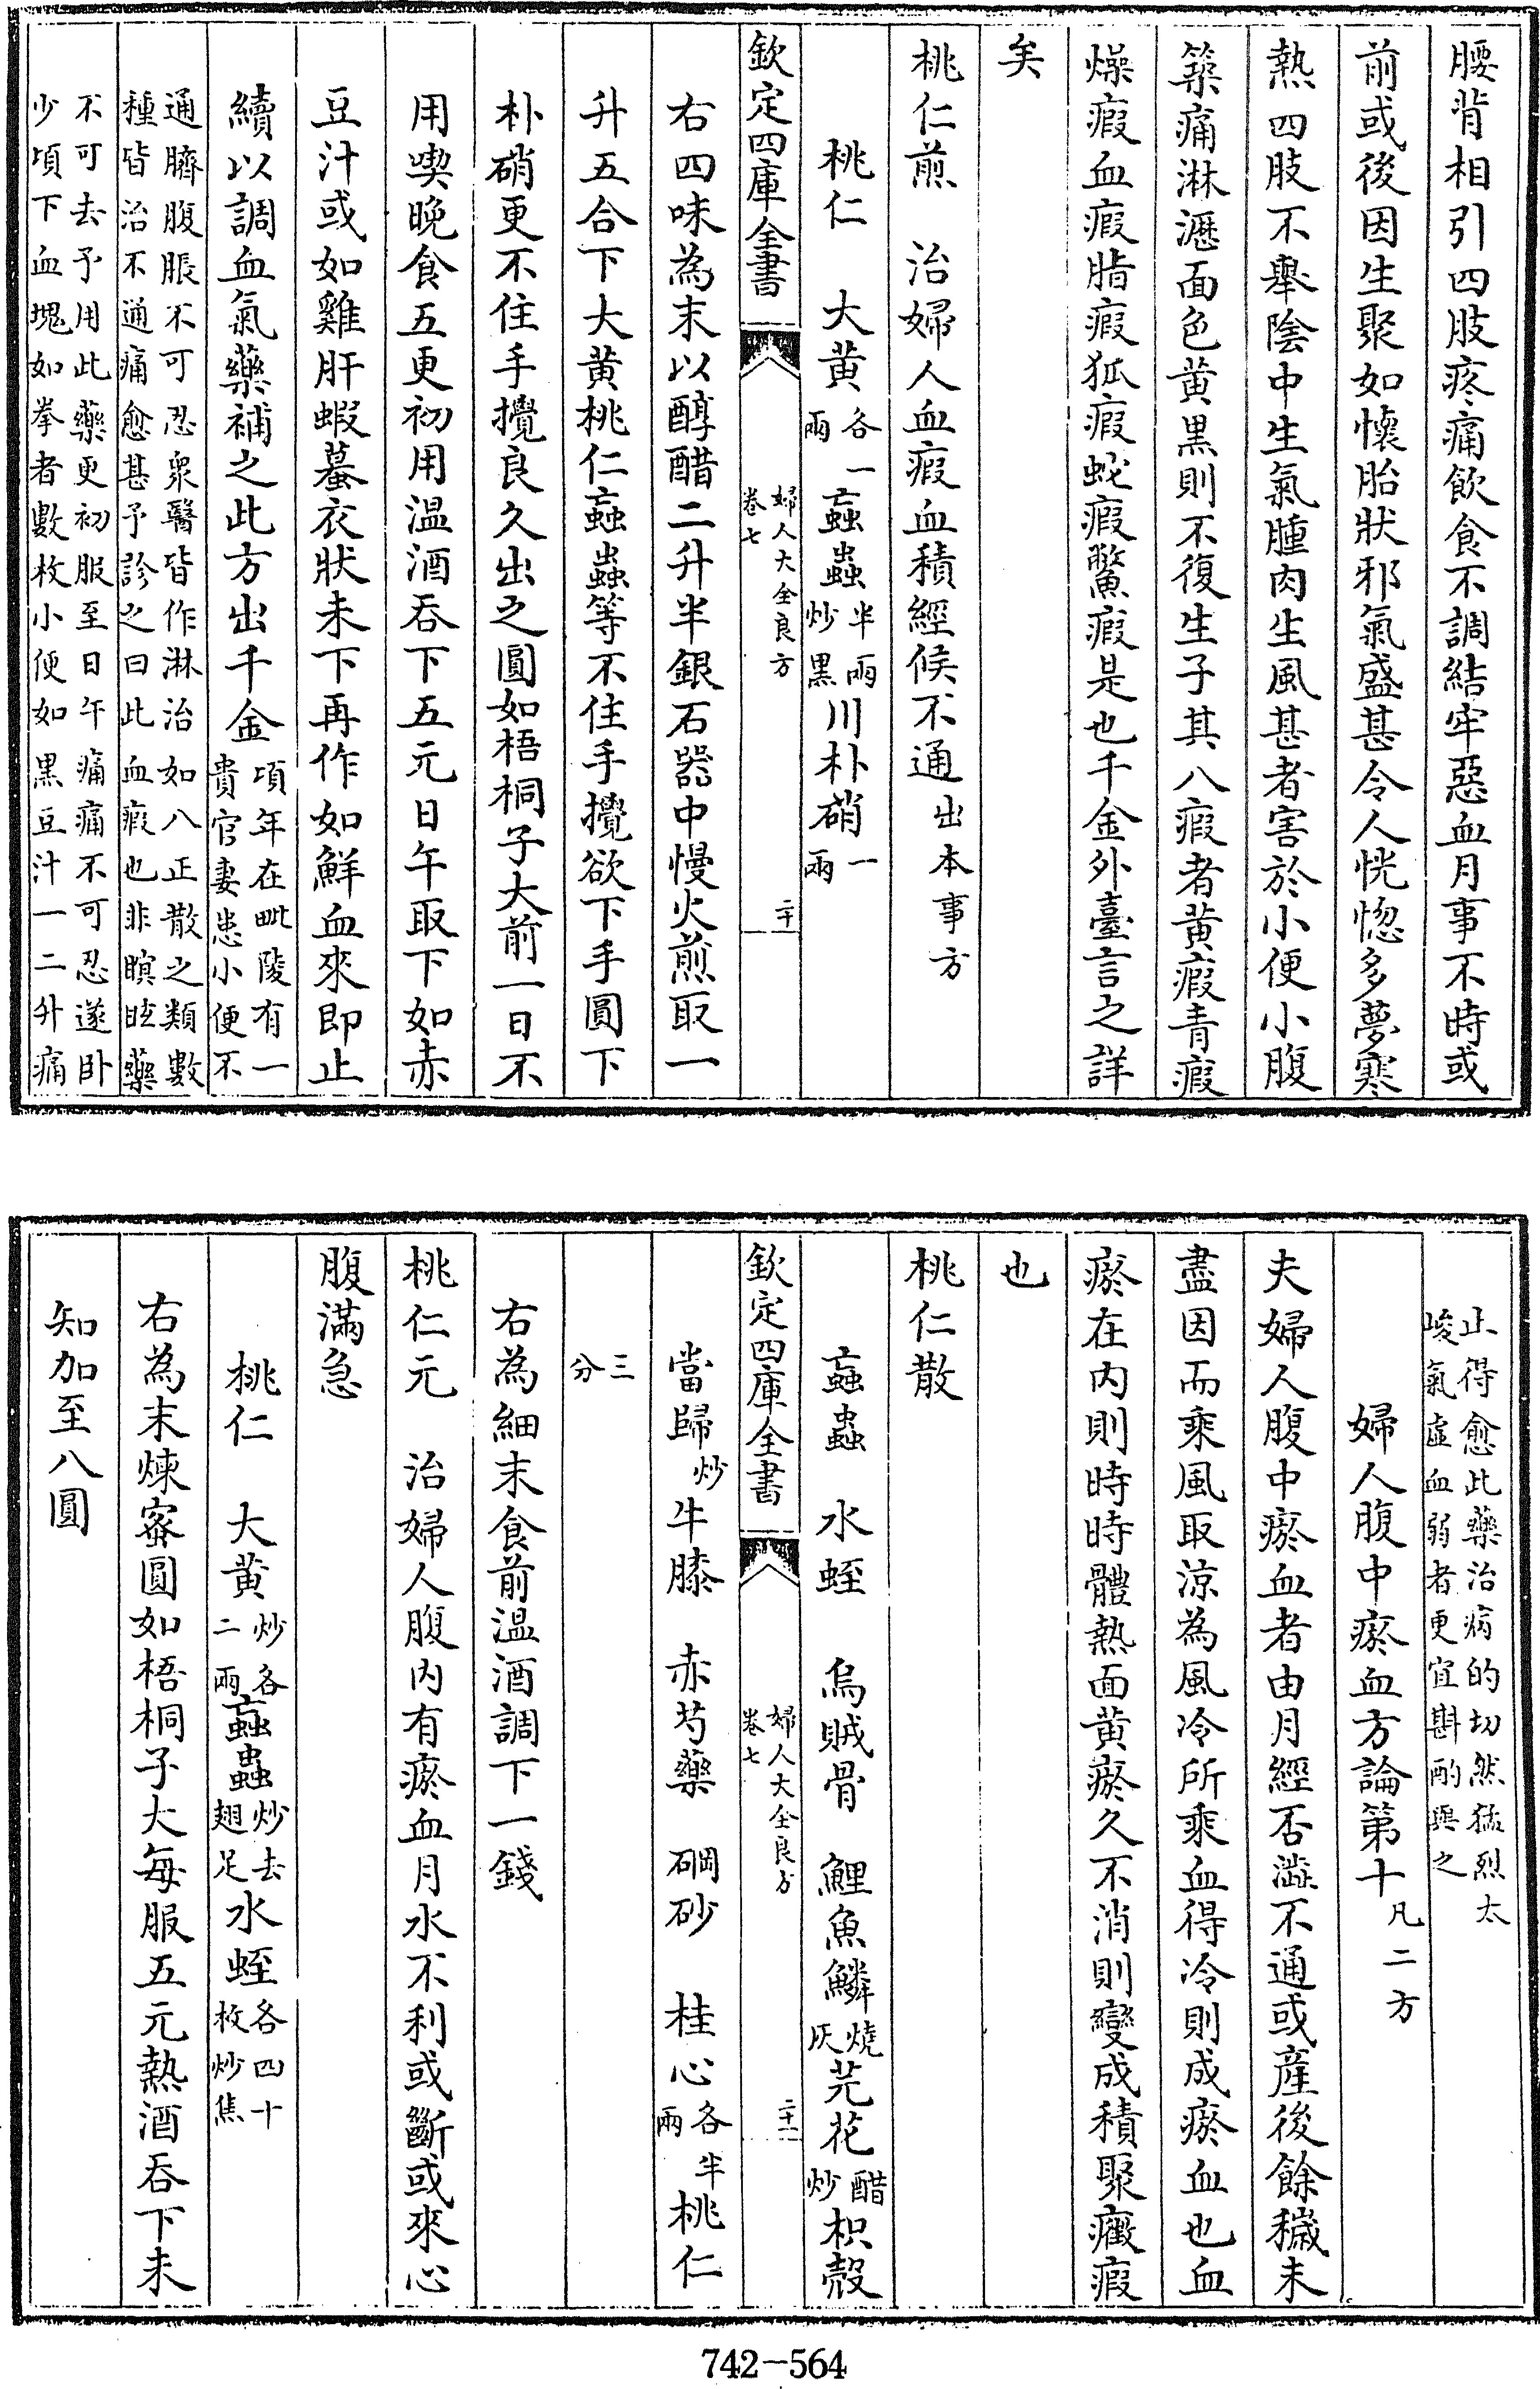 腰背相引四肢疼痛飲食不調結牢惡血月事不時或
前或後因生聚如懷胎狀邪氣盛甚令人恍惚多夢寒
熱四肢不舉陰中生氣腫肉生風甚者害於小便小腹
築痛淋瀝面色黄黒則不復生子其八瘕者黄瘕青瘕
燥瘕血瘕脂瘕狐瘕蛇瘕鱉瘕是也千金外臺言之詳
矣
桃仁煎　治婦人血瘕血積經候不通出本事方
桃仁　大黄各一兩　蝱蟲半兩炒黒　川朴硝一兩
欽定四庫全書　婦人大全良方卷七　二十
右四味為末以醇醋二升半銀石器中慢火煎取一
升五合下大黄桃仁蝱蟲等不住手攪欲下手圓下
朴硝更不住手攪良久出之圓如梧桐子大前一日不
用喫晚食五更初用温酒吞下五元日午取下如赤
豆汁或如雞肝蝦蟇衣狀未下再作如鮮血來即止
續以調血氣藥補之此方出千金項年在毗陵有一貴官妻患小便不
通臍腹脹不可忍衆醫皆作淋治如八正散之類數
種皆治不通痛愈甚予診之曰此血瘕也非瞑眩藥
不可去予用此藥更初服至日午痛痛不可忍遂卧
少頃下血塊如拳者數枚小便如黒豆汁一二升痛
止得愈此藥治病的切然猛烈太
峻氣虛血弱者更宜斟酌與之
婦人腹中瘀血方論第十凡二方
夫婦人腹中瘀血者由月經否澁不通或産後餘穢未
盡因而乘風取涼為風冷所乘血得冷則成瘀血也血
瘀在内則時時體熱面黄瘀久不消則變成積聚癥瘕
也
桃仁散
蝱蟲　水蛭　烏賊骨　鯉魚鱗燒灰　芫花醋炒　枳殼
欽定四庫全書　婦人大全良方卷七　二十一
當歸炒　牛膝　赤芍藥　硇砂　桂心各半兩　桃仁
三分
右為細末食前温酒調下一錢
桃仁元　治婦人腹内有瘀血月水不利或斷或來心
腹滿急
桃仁　大黄炒各二兩　蝱蟲炒去翅足　水蛭各四十枚炒焦
右為末煉蜜圓如梧桐子大每服五元熱酒吞下未
知加至八圓
742-564